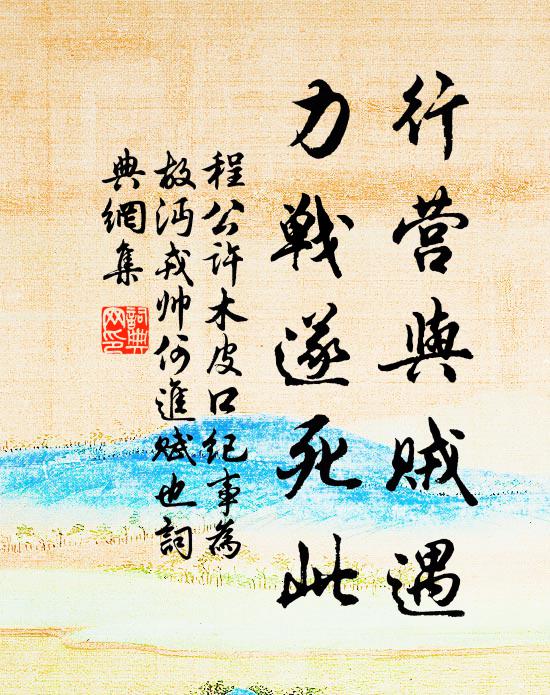 行营與贼遇
力戰遂死此
程公许木皮口纪事為
故沔戎帅何進赋也詞
典網集
詞典
网印